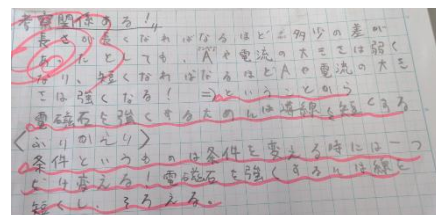 考察関係ある!!
長さが長くなればなるほど多少の差が
あったとしても、Aや電流の大きさは弱く
なり、短くなればなるほどAや電流の大き
さは強くなる! ⇒ということから
電磁石を強くするためには導線を短くする
<ふりかえり>
条件というものは条件を変える時には一つ
だけ変える!電磁石を強くするには線を
短くし、そろえる。